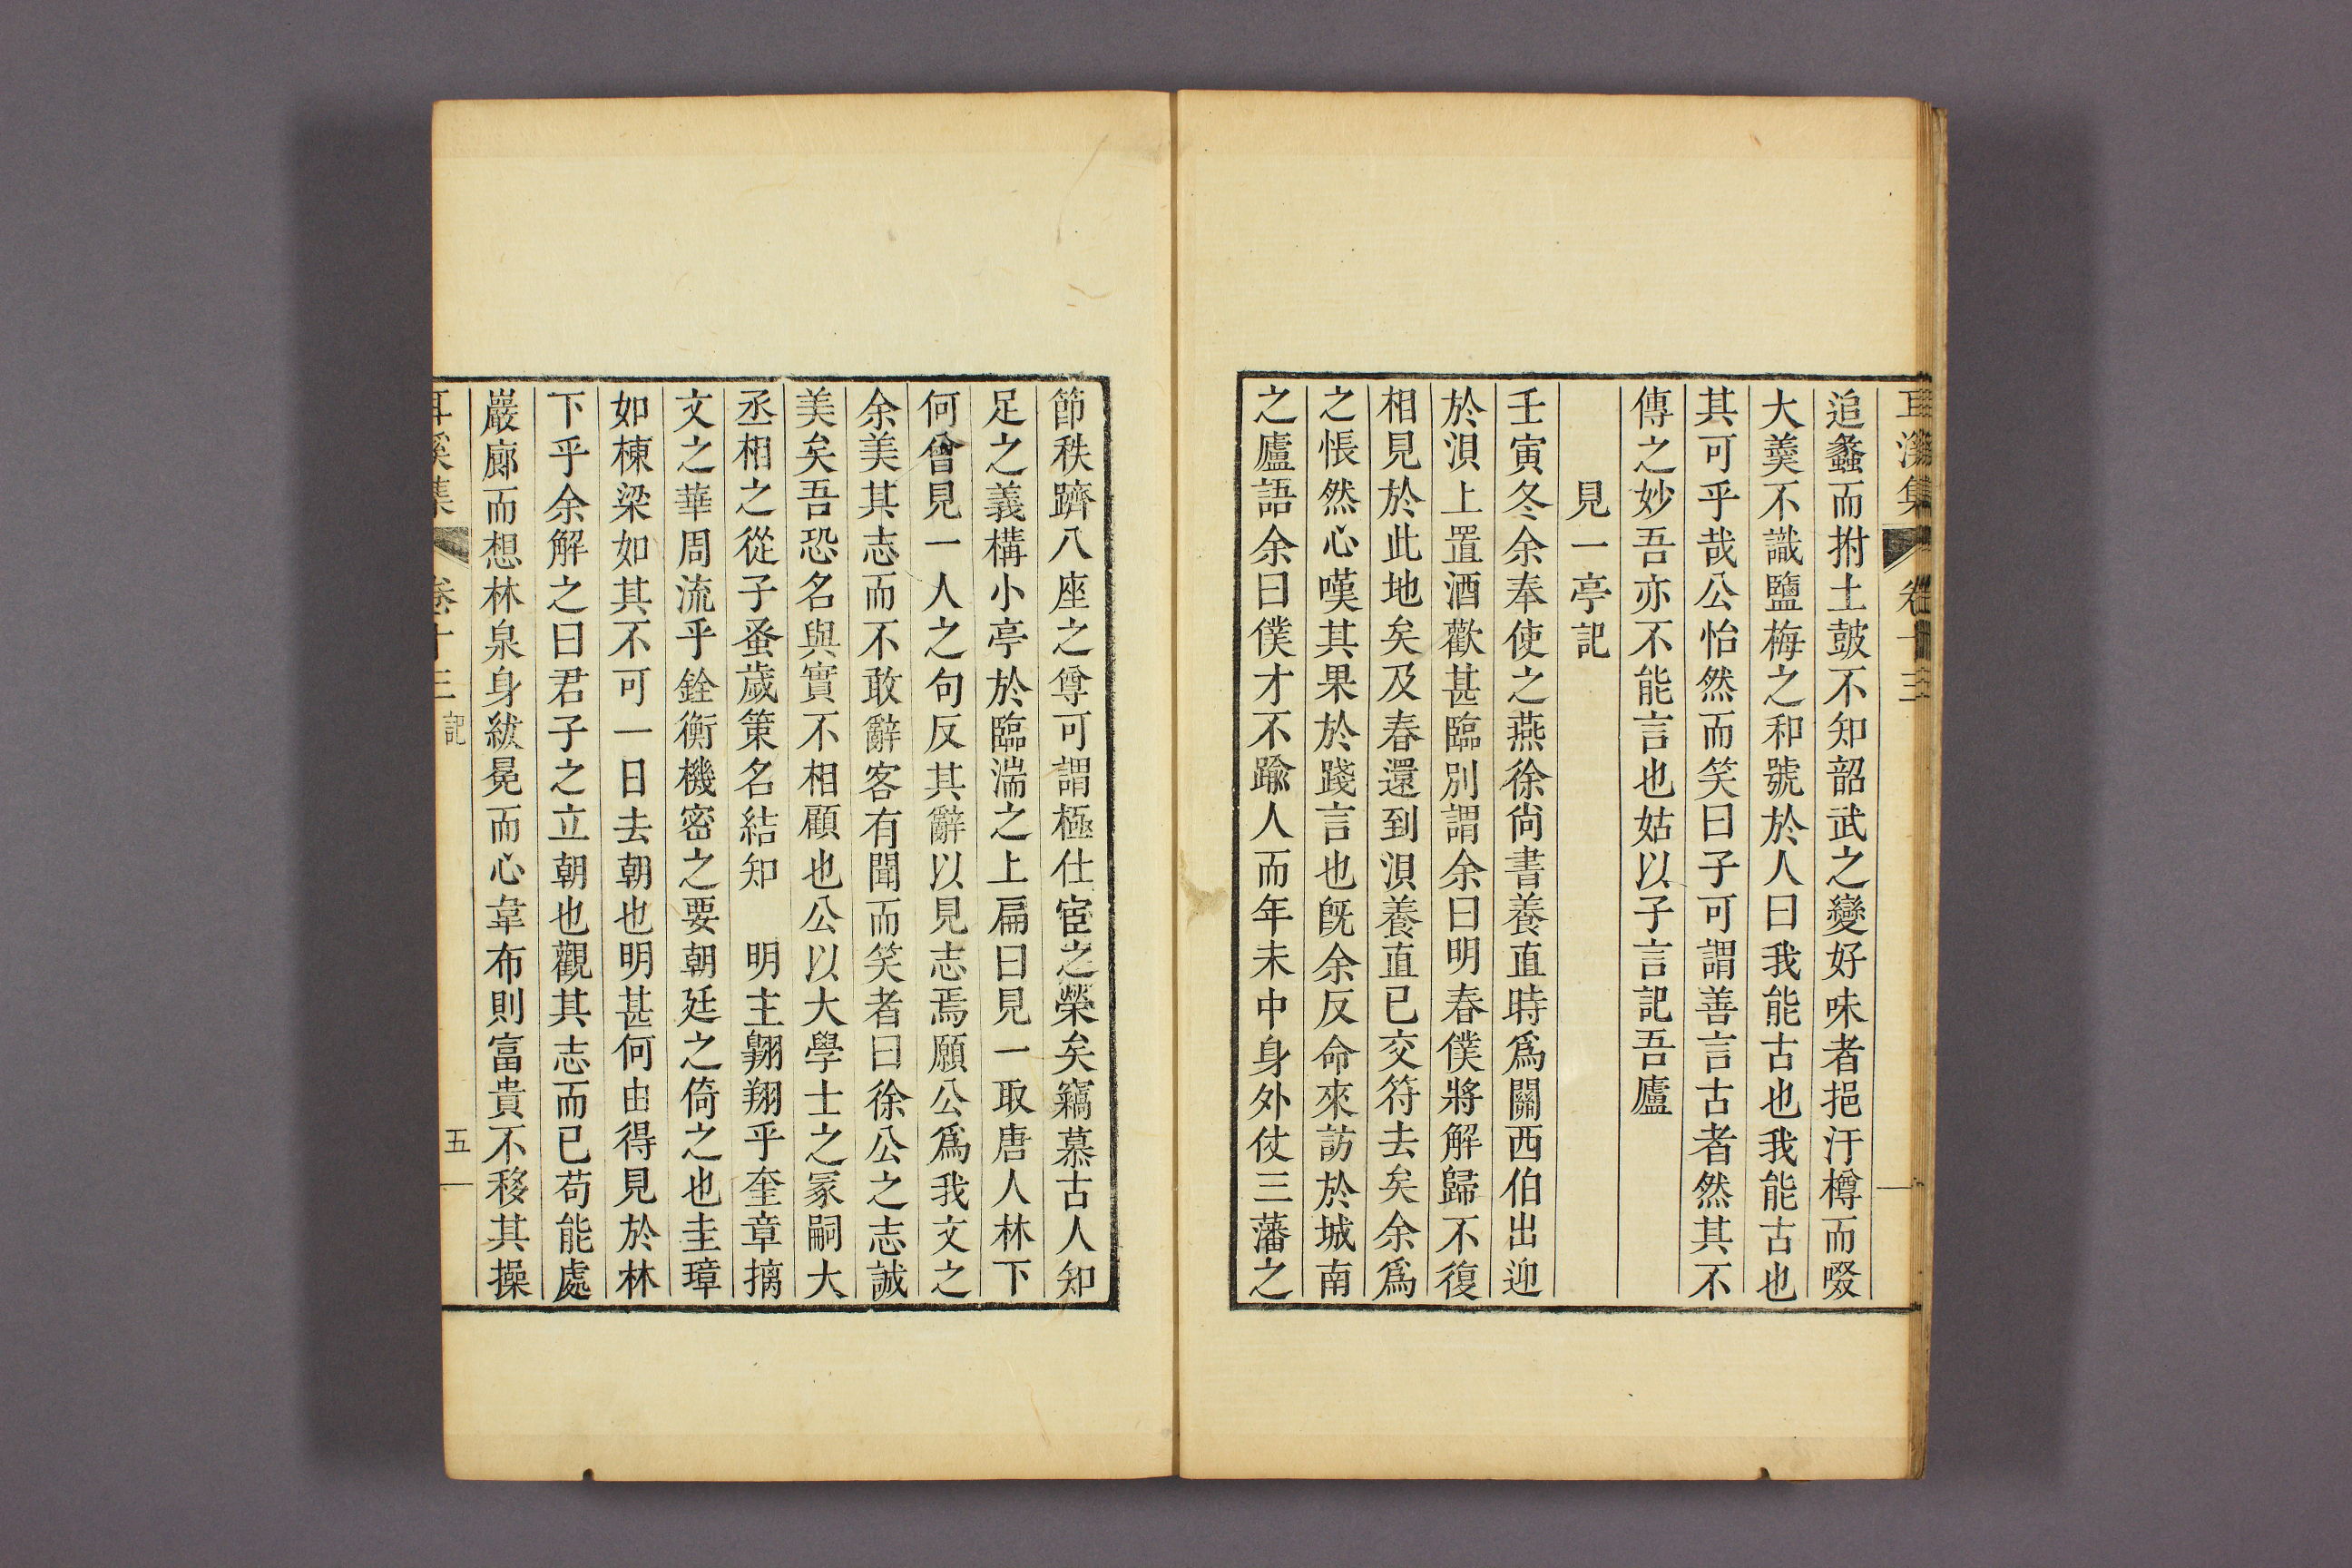 耳溪集 卷十三
追蠡而拊土鼓不知韶武之變好味者挹汙樽而啜
大羹不識鹽梅之和號於人曰我能古也我能古也
其可乎哉公怡然而笑曰子可謂善言古者然其不
傳之妙吾亦不能言也姑以子言記吾廬
見一亭記
壬寅冬余奉使之燕徐尙書養直時爲關西伯出迎
於浿上置酒歡甚臨別謂余曰明春僕將解歸不復
相見於此地矣及春還到浿養直已交符去矣余爲
之悵然心嘆其果於踐言也旣余反命來訪於城南
之廬語余曰僕才不踰人而年未中身外仗三藩之
節秩躋八座之尊可謂極仕宦之榮矣竊慕古人知
足之義構小亭於臨湍之上扁曰見一取唐人林下
何曾見一人之句反其辭以見志焉願公爲我文之
余美其志而不敢辭客有聞而笑者曰徐公之志誠
美矣吾恐名與實不相顧也公以大學士之冡嗣大
丞相之從子蚤歲策名結知 明主翺翔乎奎章摛
文之華周流乎銓衡機密之要朝廷之倚之也圭璋
如棟梁如其不可一日去朝也明甚何由得見於林
下乎余解之曰君子之立朝也觀其志而已苟能處
巖廊而想林泉身紱冕而心韋布則富貴不移其操
耳溪集 卷十三 記 五